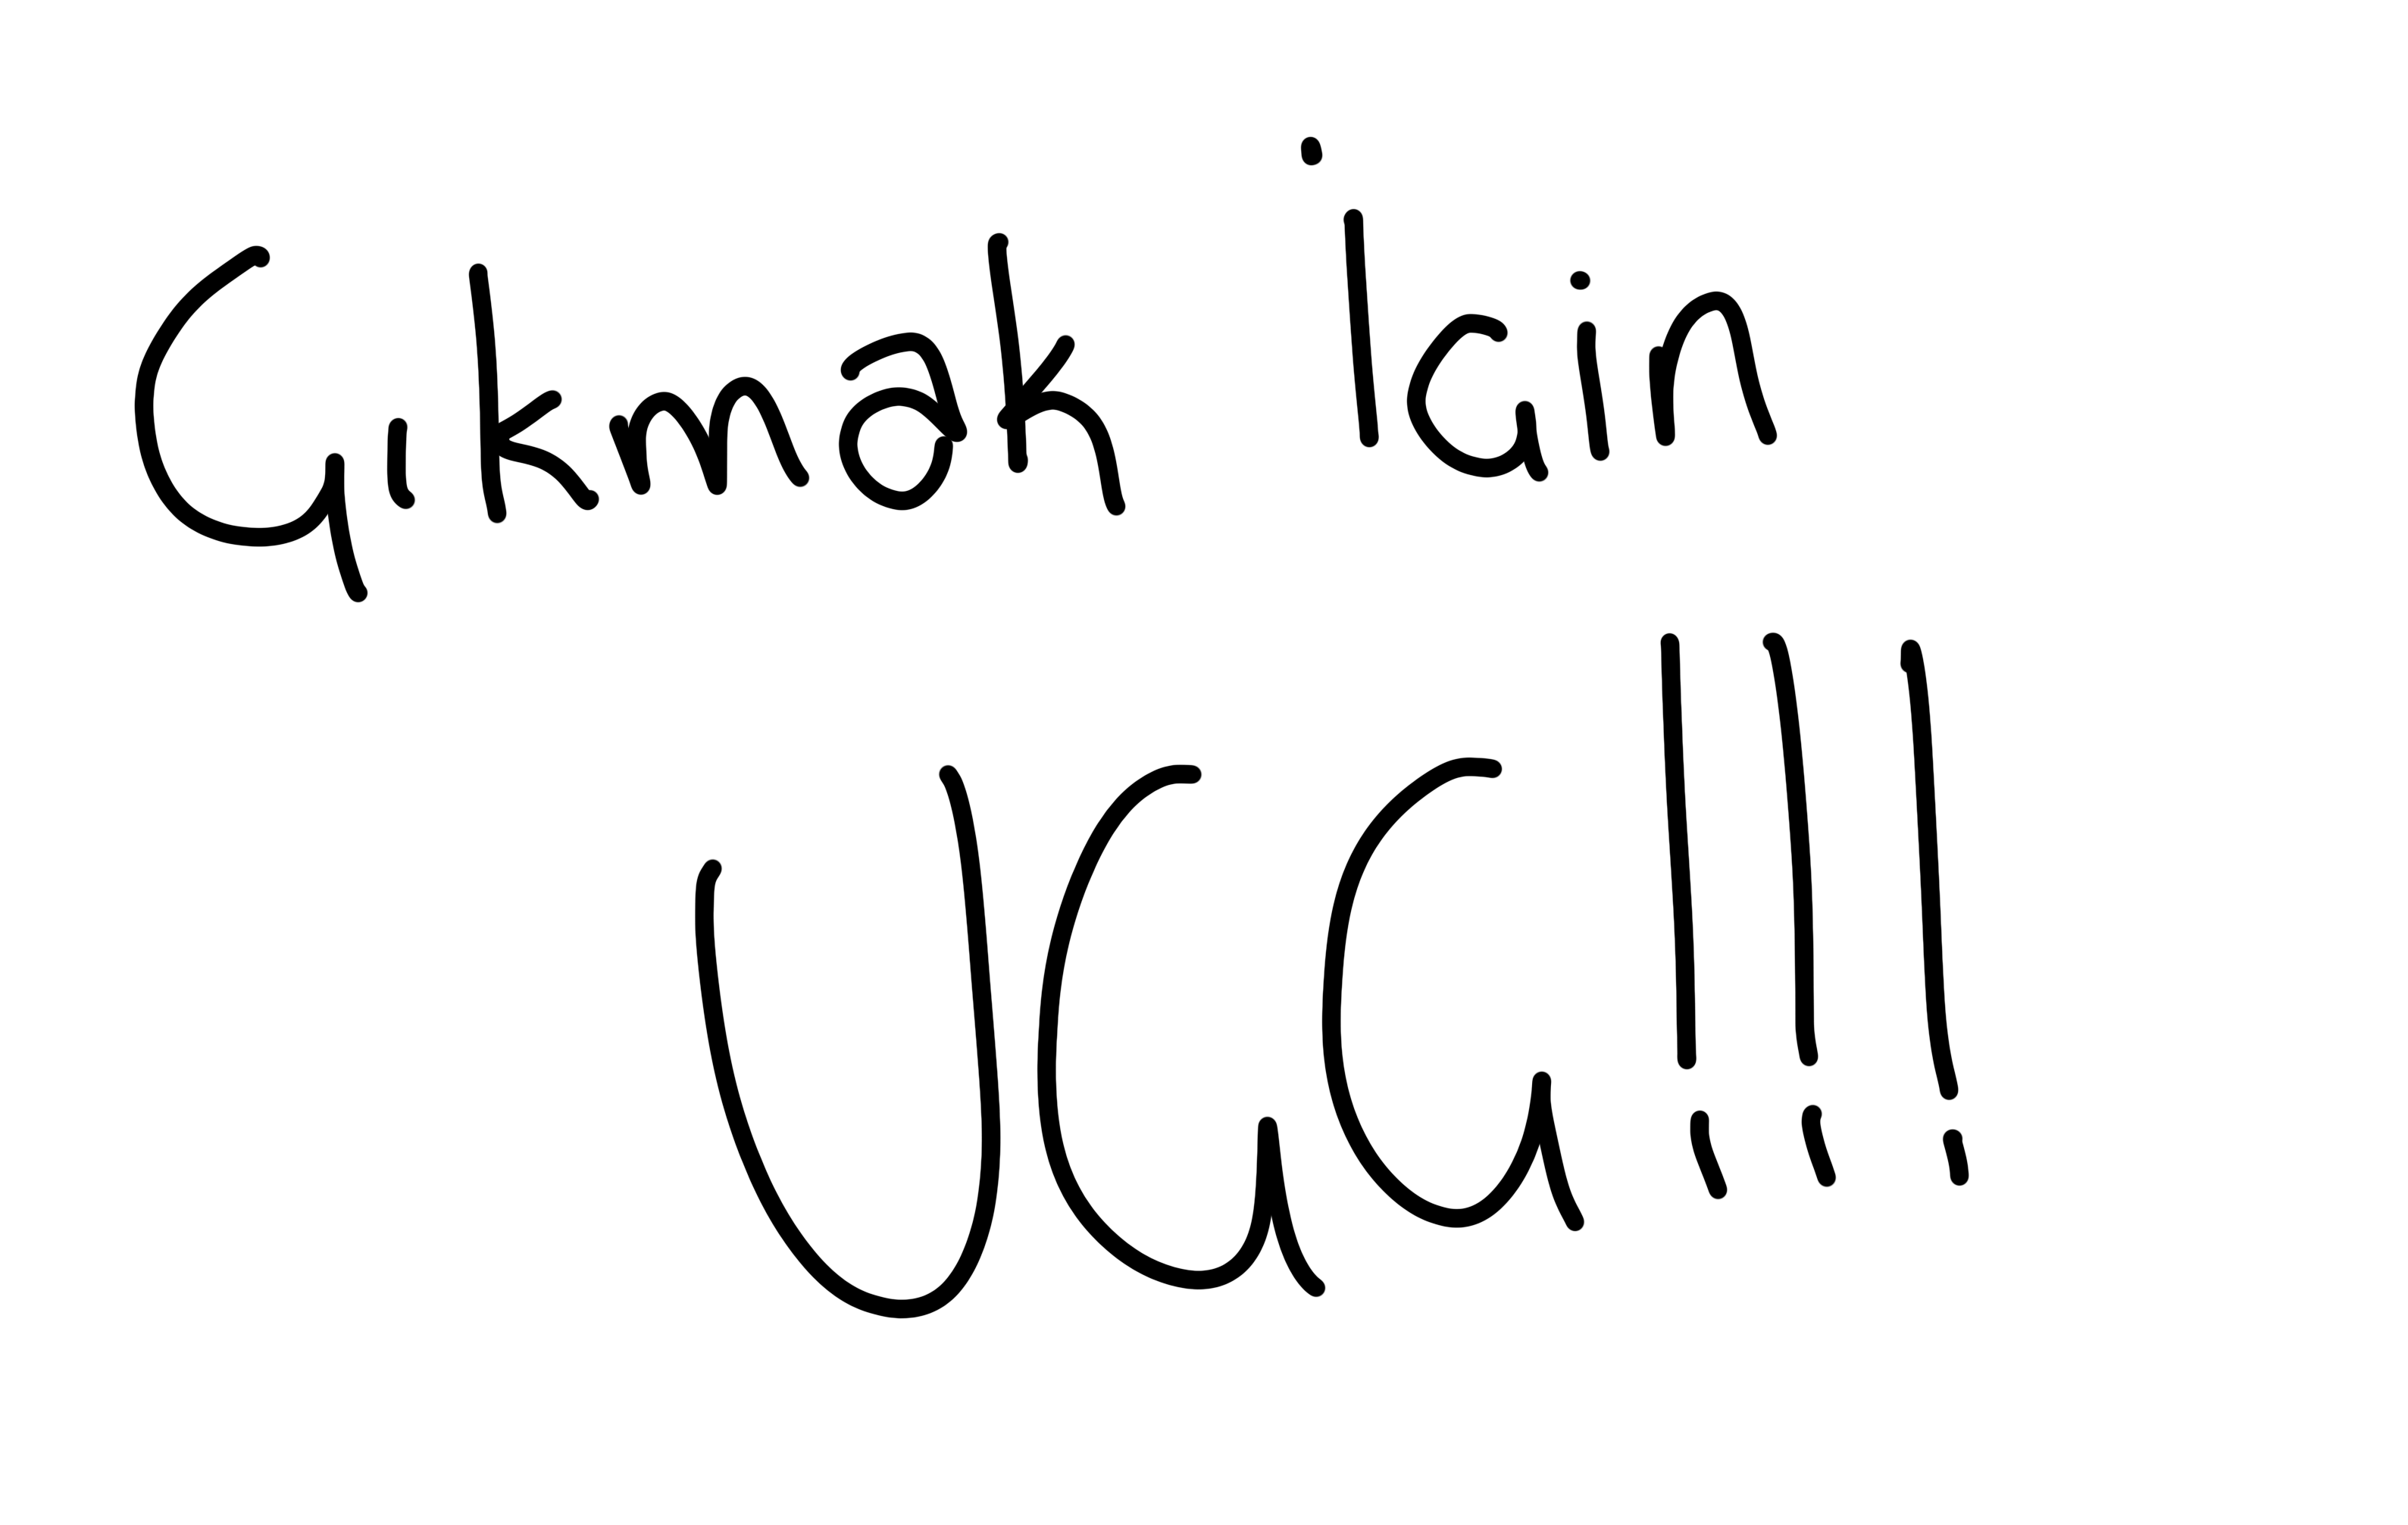 Çıkmak İçin
UÇÇ!!!